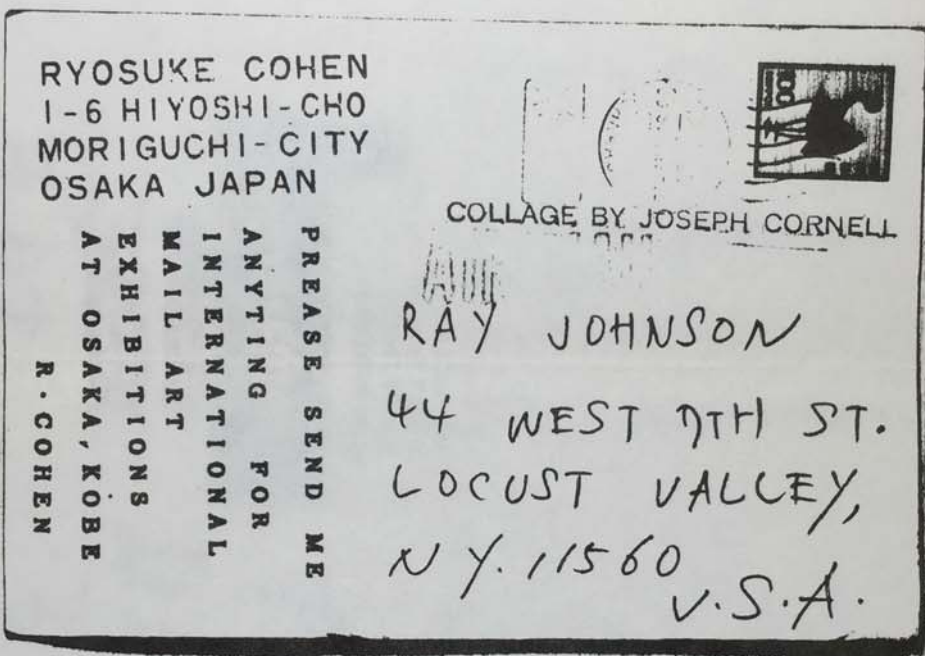 RYOSUKE COHEN
1-6 HIYOSHI-CHO
MORIGUCHI-CITY
OSAKA JAPAN
PREASE SEND ME
ANYTING FOR
INTERNATIONAL
MAIL ART
EXHIBITIONS
AT OSAKA, KOBE
R·COHEN
COLLAGE BY JOSEPH CORNELL
RAY JOHNSON
44 WEST 7TH ST.
LOCUST VALLEY,
NY. 11560
U.S.A.